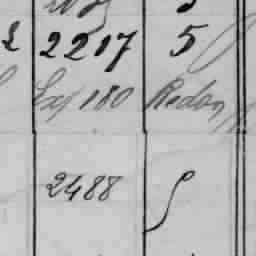 2217 5
Ex 180 Redon
2488